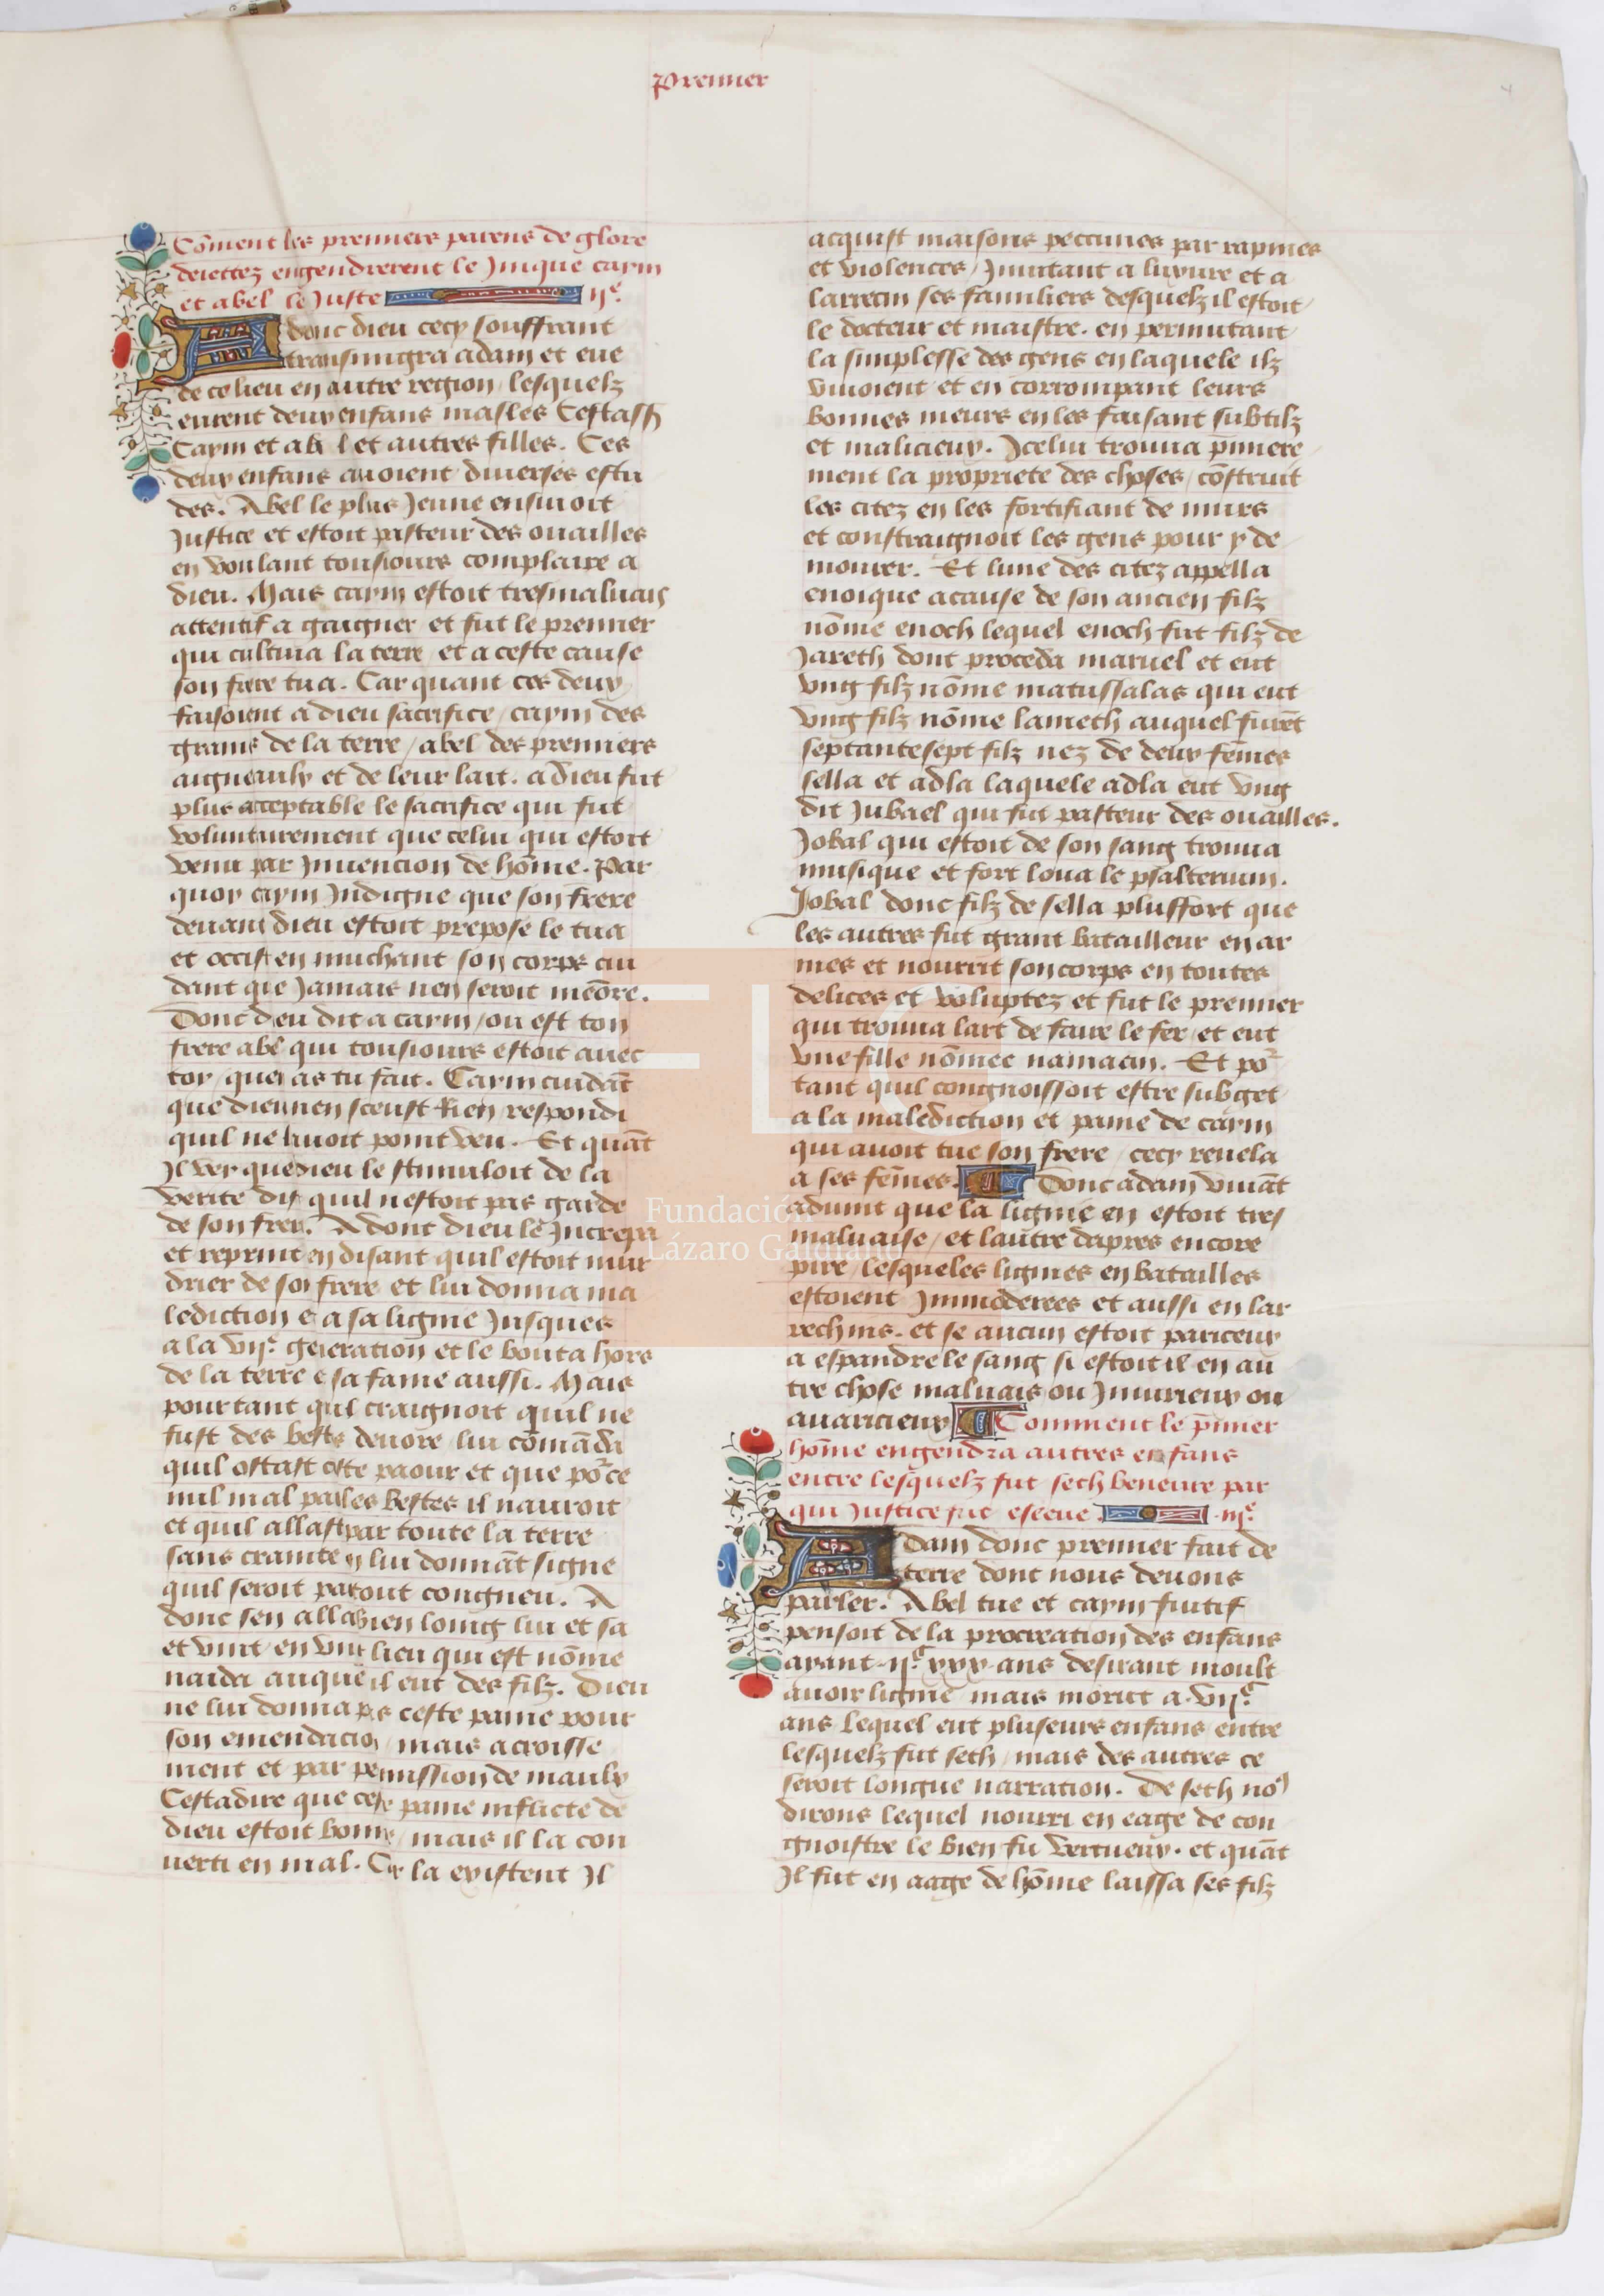 Premier
4
Cōment les premiers parens de glore
deiettez engendrerent le Jnique caym
et abel le Juste ijᵉ.
Adonc dieu cecy souffrant
transmigra adam et eue
de ce lieu en autre region / lesquelz
eurent deux enfans masles Cestass
Caym et ab l et autres filles. Ces
deux enfans auoient diuerses estu
des. Abel le plus Jeune ensuiuoit
Justice et estoit pasteur des ouailles
en voulant tousiours complaire a
dieu. Mais caym estoit tresmaluais
attentif a gaigner et fut le premier
qui cultiua la terre / et a ceste cause
son frere tua. Car quant ces deux
faisoient a dieu sacrifice / caym des
grains de la terre / abel des premiers
aigneaulx et de leur lait. a dieu fut
plus acceptable le sacrifice qui fut
voluntairement que celui qui estoit
venu par Jnuencion de hōme. Par
quoy caym Jndigne que son frere
deuant dieu estoit prepose le tua
et occist en muchant son corps cui
dant que Jamais nen seroit mēōre.
Donc dieu dit a caim / ou est ton
frere abel qui tousiours estoit auec
toy / que as tu fait. Caym cuidāt
que dieu nen sceust Rien / respondi
quil ne lauoit point veu. Et quāt
Jl vey que dieu le stimuloit de la
verite dist quil nestoit pas garde
de son frere. Adonc dieu le Jncrepa
et reprint en disant quil estoit mur
drier de son frere et lui donna ma
lediction et a sa lignie Jusques
a la vijᵉ. generation et le bouta hors
de la terre et sa fame aussi. Mais
pour tant quil craignoit quil ne
fust des bestes deuore / lui cōmāda
quil ostast ceste paour et que poᵣ ce
nul mal par les bestes il nauroit
et quil allast par toute la terre
sans crainte en lui donnāt signe
quil seroit par tout congneu. A
donc sen alla bien loing lui et sa
et vint en vng lieu qui est nōme
naida auquel il eut des filz. Dieu
ne lui donna pas ceste paine pour
son emendacion / mais acroisse
ment et par permission de maulx
Cestadire que ceste paine inflicte de
dieu estoit bonne / mais il la con
uerti en mal. Car la existent Jl
acquist maisons peccunes par rapines
et violences / Jnuitant a luxure et a
larrecin ses familiers desquelz il estoit
le docteur et maistre. en permutant
la simplesse des gens en laquele ilz
viuoient et en corrompant leurs
bonnes meurs en les faisant subtilz
et malicieux. Jcelui trouua p̄miere
ment la propriete des choses / cōstruit
les citez en les fortifiant de murs
et constraignoit les gens pour y de
mourer. Et lune des citez appella
enoique a cause de son ancien filz
nōme enoch lequel enoch fut filz de
Jareth dont proceda maruel et eut
vng filz nōme matussalas qui eut
vng filz nōme lameth auquel furēt
septantesept filz nez de deux fēmes
sella et adla laquele adla eut vng
dit Jubael qui fut pasteur des ouailles.
Jobal qui estoit de son sang trouua
musique et fort loua le psalterium.
Jobal donc filz de sella plusfort que
les autres fut grant batailleur en ar
mes et nourrit son corps en toutes
delices et voluptez et fut le premier
qui trouua lart de faire le fer / et eut
vne fille nōmee namaan. Et poᵣ
tant quil congnoissoit estre subget
a la malediction et paine de caym
qui auoit tue son frere / cecy reuela
a ses fēmes. Donc adam viuāt
aduint que la lignie en estoit tres
maluaise / et lautre dapres encore
pire / lesqueles lignies en batailles
estoient Jmmoderees et aussi en lar
rechins. et se aucun estoit pariceux
a espandre le sang si estoit il en au
tre chose maluais ou Jniurieux ou
auaricieux Comment le p̄mier
hōme engendra autres enfans
entre lesquelz fut seth beneure par
qui Justice fut esleue. iijᵉ.
Adam donc premier fait de
terre dont nous deuons
parler. Abel tue et caym fuitif
pensoit de la procreation des enfans
ayant .ijᶜ. xxx. ans desirant moult
auoir lignie / mais morut a .vijᶜ.
ans / lequel eut pluseurs enfans / entre
lesquelz fut seth / mais des autres ce
seroit longue narration. De seth noꝰ
dirons lequel nourri en eage de con
gnoistre le bien fu vertueux. et quāt
Jl fut en aage de hōme laissa ses filz
Fundación
Lázaro Galdiano